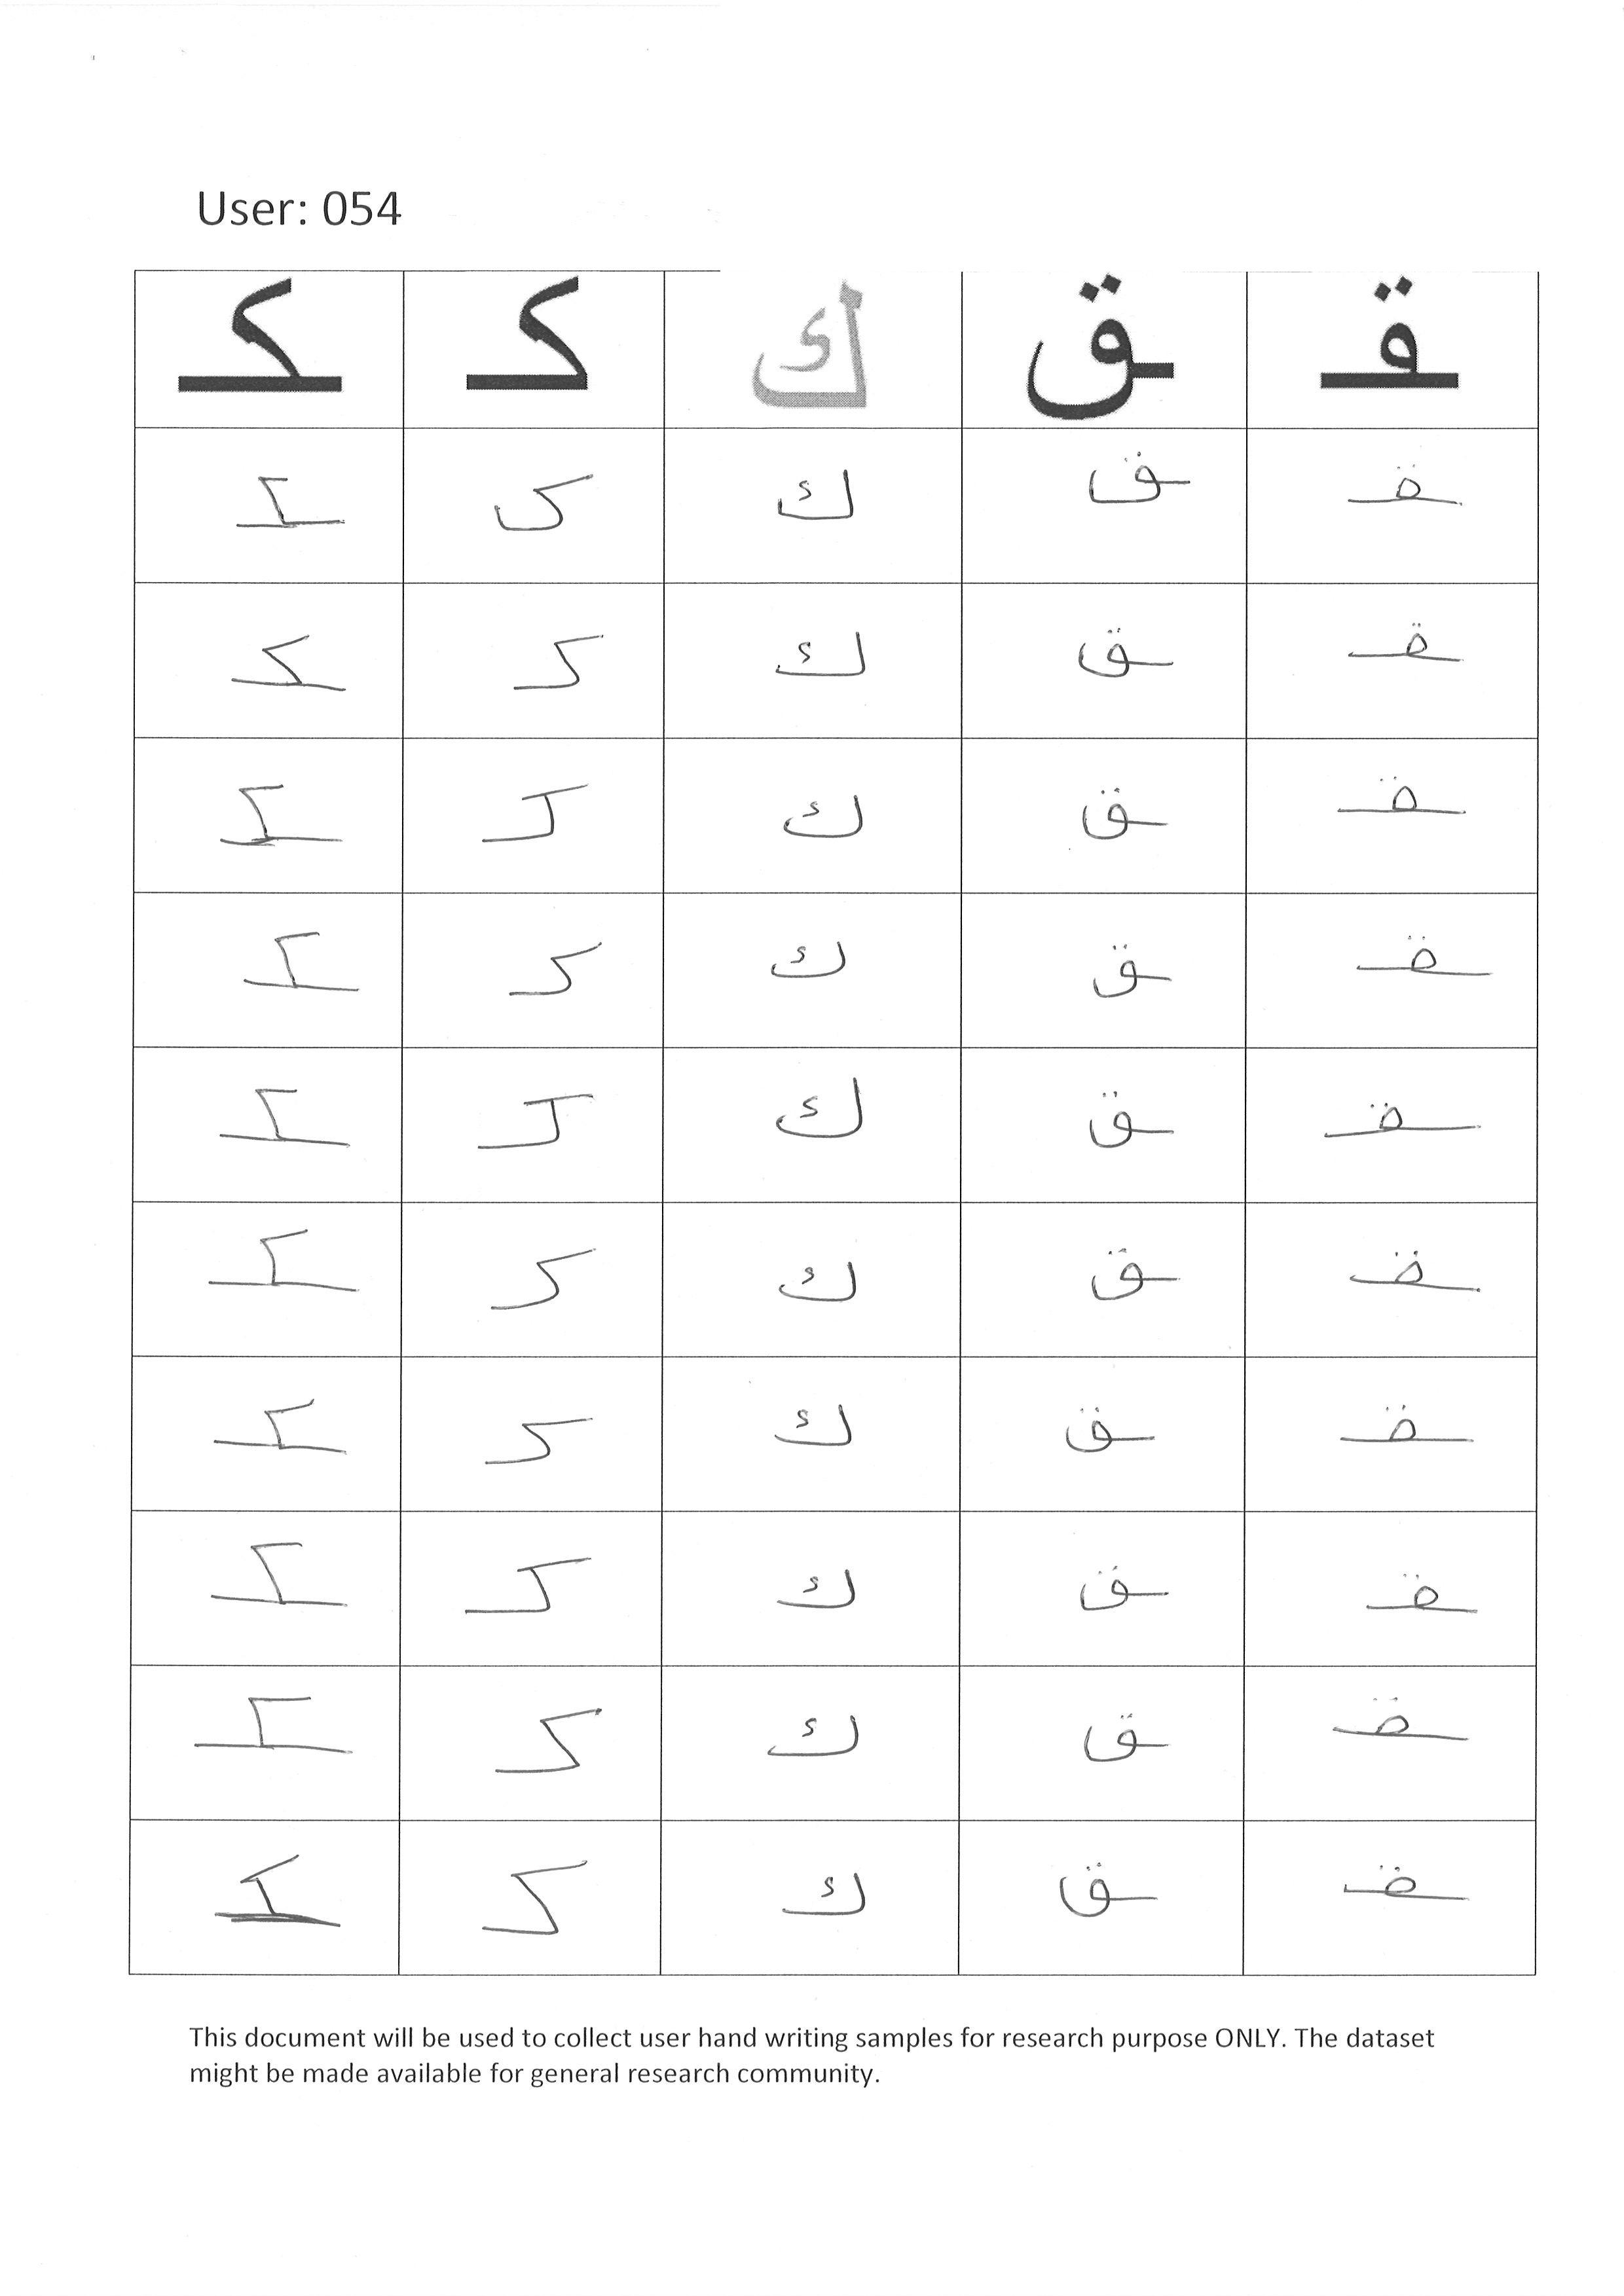 User: 054
ـقـ ـق ك كـ ـكـ
ـقـ ـق ك ک ـكـ
ـقـ ـق ك كـ ـكـ
ـقـ ـق ك كـ ـكـ
ـقـ ـق ك كـ ـكـ
ـقـ ـق ك كـ ـكـ
ـقـ ـق ك كـ ـكـ
ـقـ ـق ك كـ ـكـ
ـقـ ـق ك كـ ـكـ
ـقـ ـق ك كـ ـكـ
ـقـ ـق ك كـ ـكـ
This document will be used to collect user hand writing samples for research purpose ONLY. The dataset
might be made available for general research community.